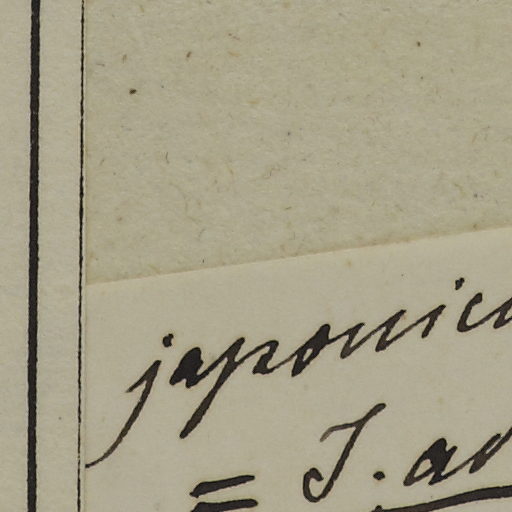 japonic
= J. ad